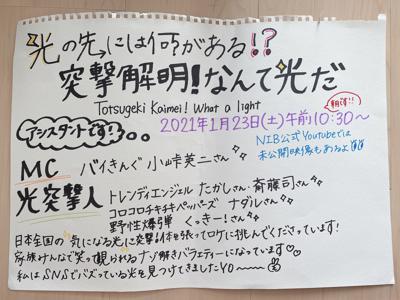 光の先には何がある!?
突撃解明!なんて光だ
Totsugeki Kaimei! What a light
朝です!!
アシスタントです!
2021年1月23日(土)午前10:30~
NIB公式Youtubeでは
未公開映像もあるよ
MC バイきんぐ 小峠英二さん
光突撃人 トレンディエンジェル たかしさん・斎藤司さん
コロコロチキチキペッパーズ ナダルさん
野性爆弾 くっきー!さん
日本全国の"気になる光"に突撃!体を張ってロケに挑んでくださっています!
家族みんなで笑って観られるナゾ解きバラエティーになっています♡
私はSNSでバズっている光を見つけてきましたYO~